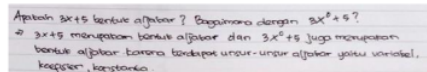 Apakah 3x+5 bentuk aljabar? Bagaimana dengan 3x²+5?
⇒ 3x+5 merupakan bentuk aljabar dan 3x²+5 juga merupakan
bentuk aljabar karena terdapat unsur-unsur aljabar yaitu variabel,
koefisien, konstanta.